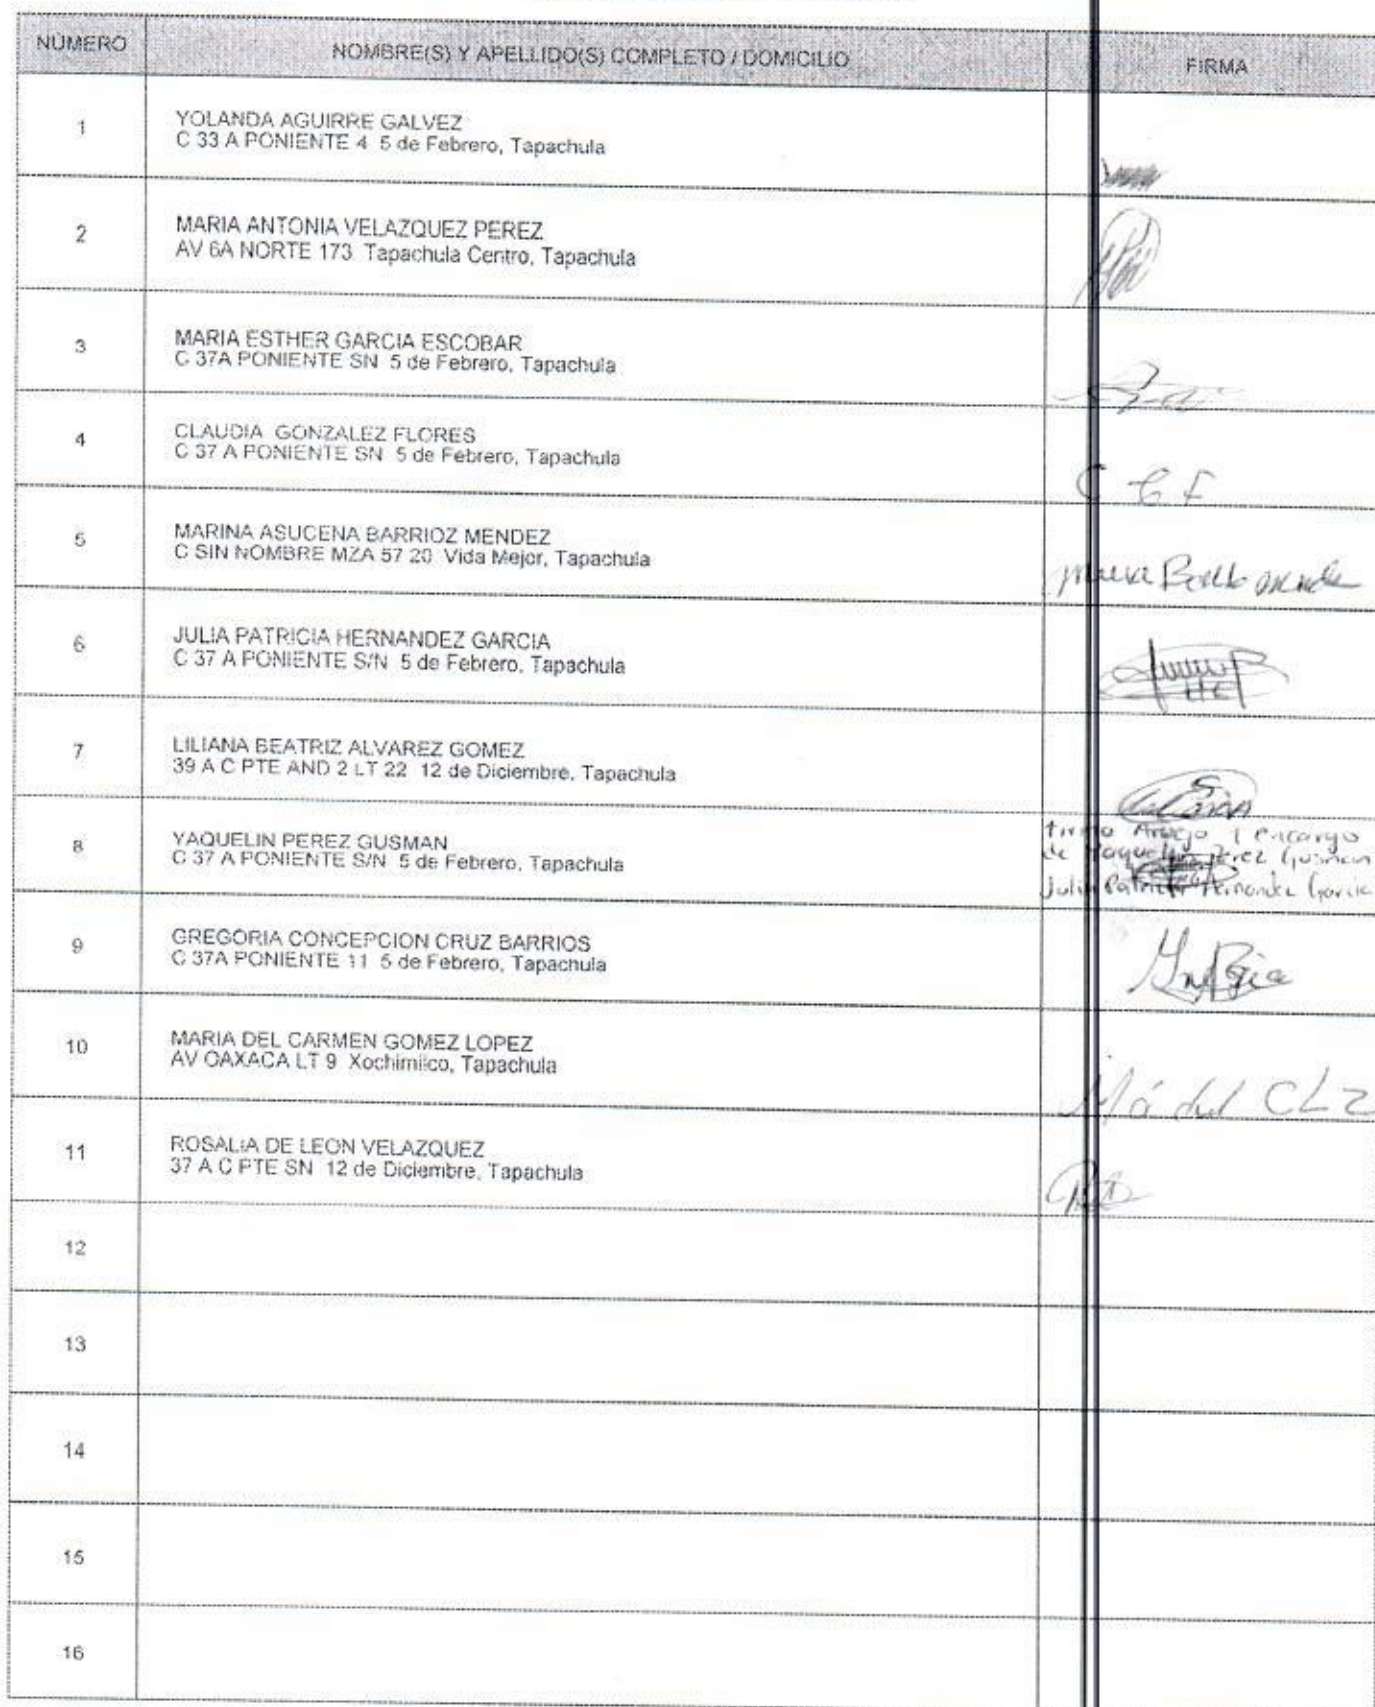 NÚMERO
NOMBRE(S) Y APELLIDO(S) COMPLETO / DOMICILIO
FIRMA
1
YOLANDA AGUIRRE GALVEZ
C 33 A PONIENTE 4 5 de Febrero, Tapachula
2
MARIA ANTONIA VELAZQUEZ PEREZ
AV 6A NORTE 173 Tapachula Centro, Tapachula
3
MARIA ESTHER GARCIA ESCOBAR
C 37A PONIENTE SN 5 de Febrero, Tapachula
4
CLAUDIA GONZALEZ FLORES
C 37 A PONIENTE SN 5 de Febrero, Tapachula
C G F
5
MARINA ASUCENA BARRIOZ MENDEZ
C SIN NOMBRE MZA 57 20 Vida Mejor, Tapachula
6
JULIA PATRICIA HERNANDEZ GARCIA
C 37 A PONIENTE S/N 5 de Febrero, Tapachula
7
LILIANA BEATRIZ ALVAREZ GOMEZ
39 A C PTE AND 2 LT 22 12 de Diciembre, Tapachula
8
YAQUELIN PEREZ GUSMAN
C 37 A PONIENTE S/N 5 de Febrero, Tapachula
firmo Aruego y encargo
de Yaquelin Perez Gusman
Julia Patricia Hernandez Garcia
9
GREGORIA CONCEPCION CRUZ BARRIOS
C 37A PONIENTE 11 5 de Febrero, Tapachula
10
MARIA DEL CARMEN GOMEZ LOPEZ
AV OAXACA LT 9 Xochimilco, Tapachula
Má del C L Z
11
ROSALIA DE LEON VELAZQUEZ
37 A C PTE SN 12 de Diciembre, Tapachula
12
13
14
15
16